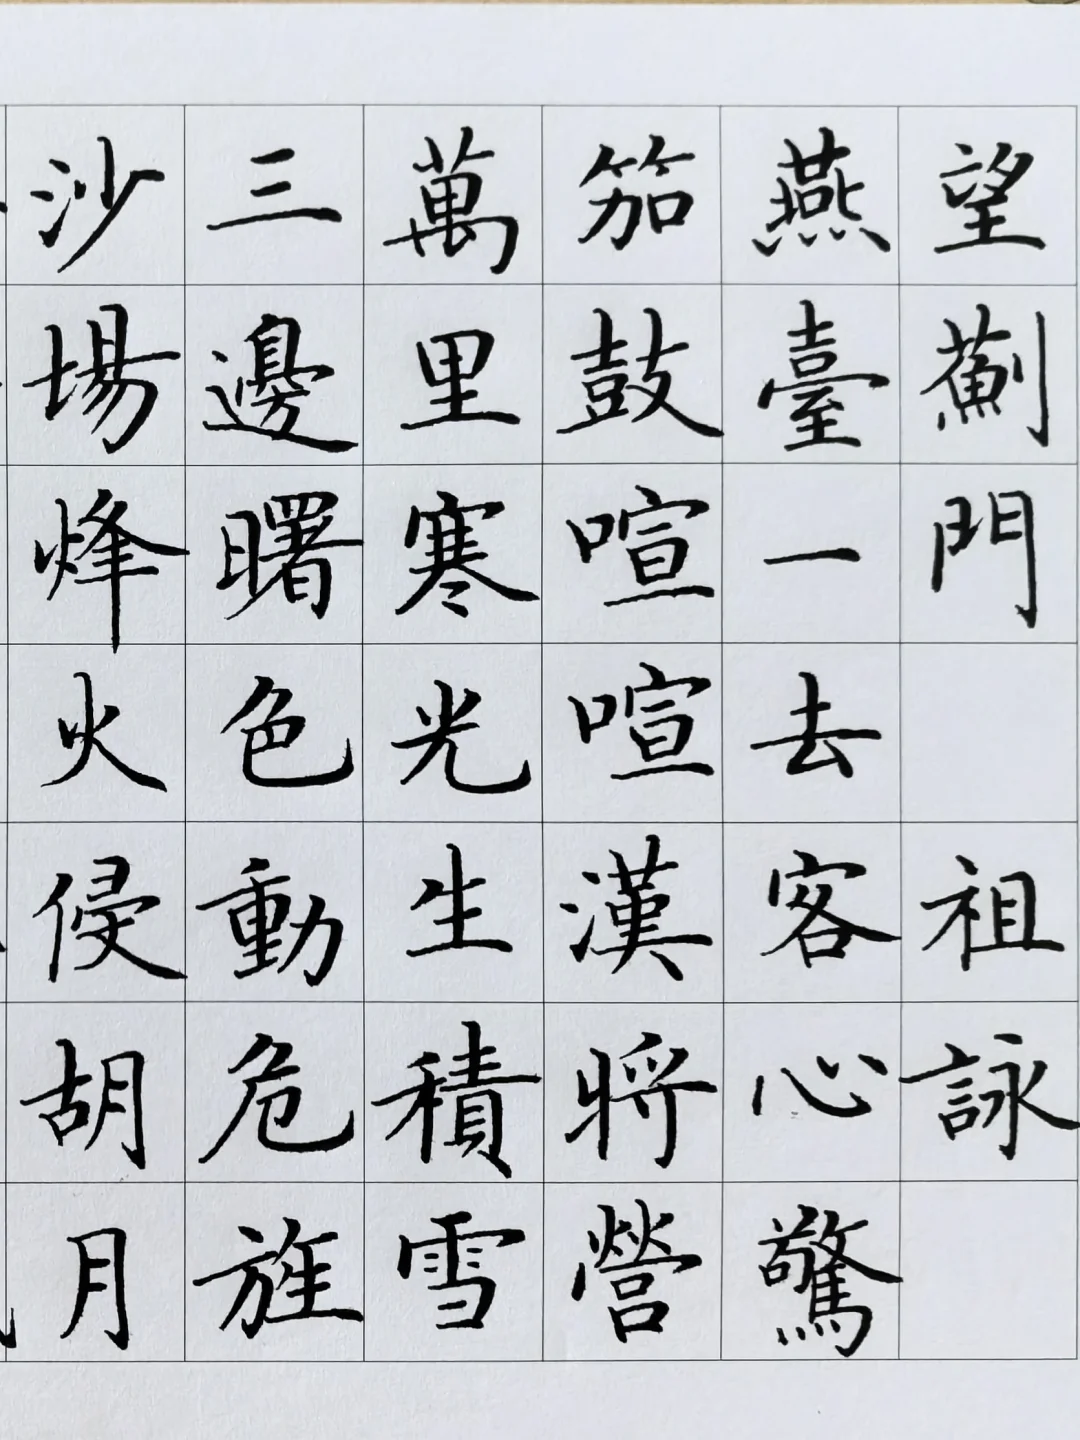 望薊門 祖詠
燕臺一去客心驚
笳鼓喧喧漢將營
萬里寒光生積雪
三邊曙色動危旌
沙場烽火侵胡月